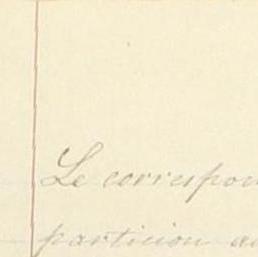 Le correspon
particion au